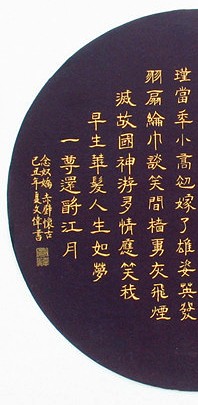 瑾當年小喬初嫁了雄姿英發
羽扇綸巾談笑間檣虜灰飛煙
滅故國神游多情應笑我
早生華髮人生如夢
一尊還酹江月
念奴嬌 赤壁懷古
己丑年夏文偉書